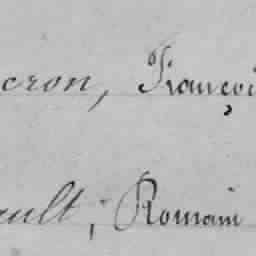 cron, Françoi
ault, Romain